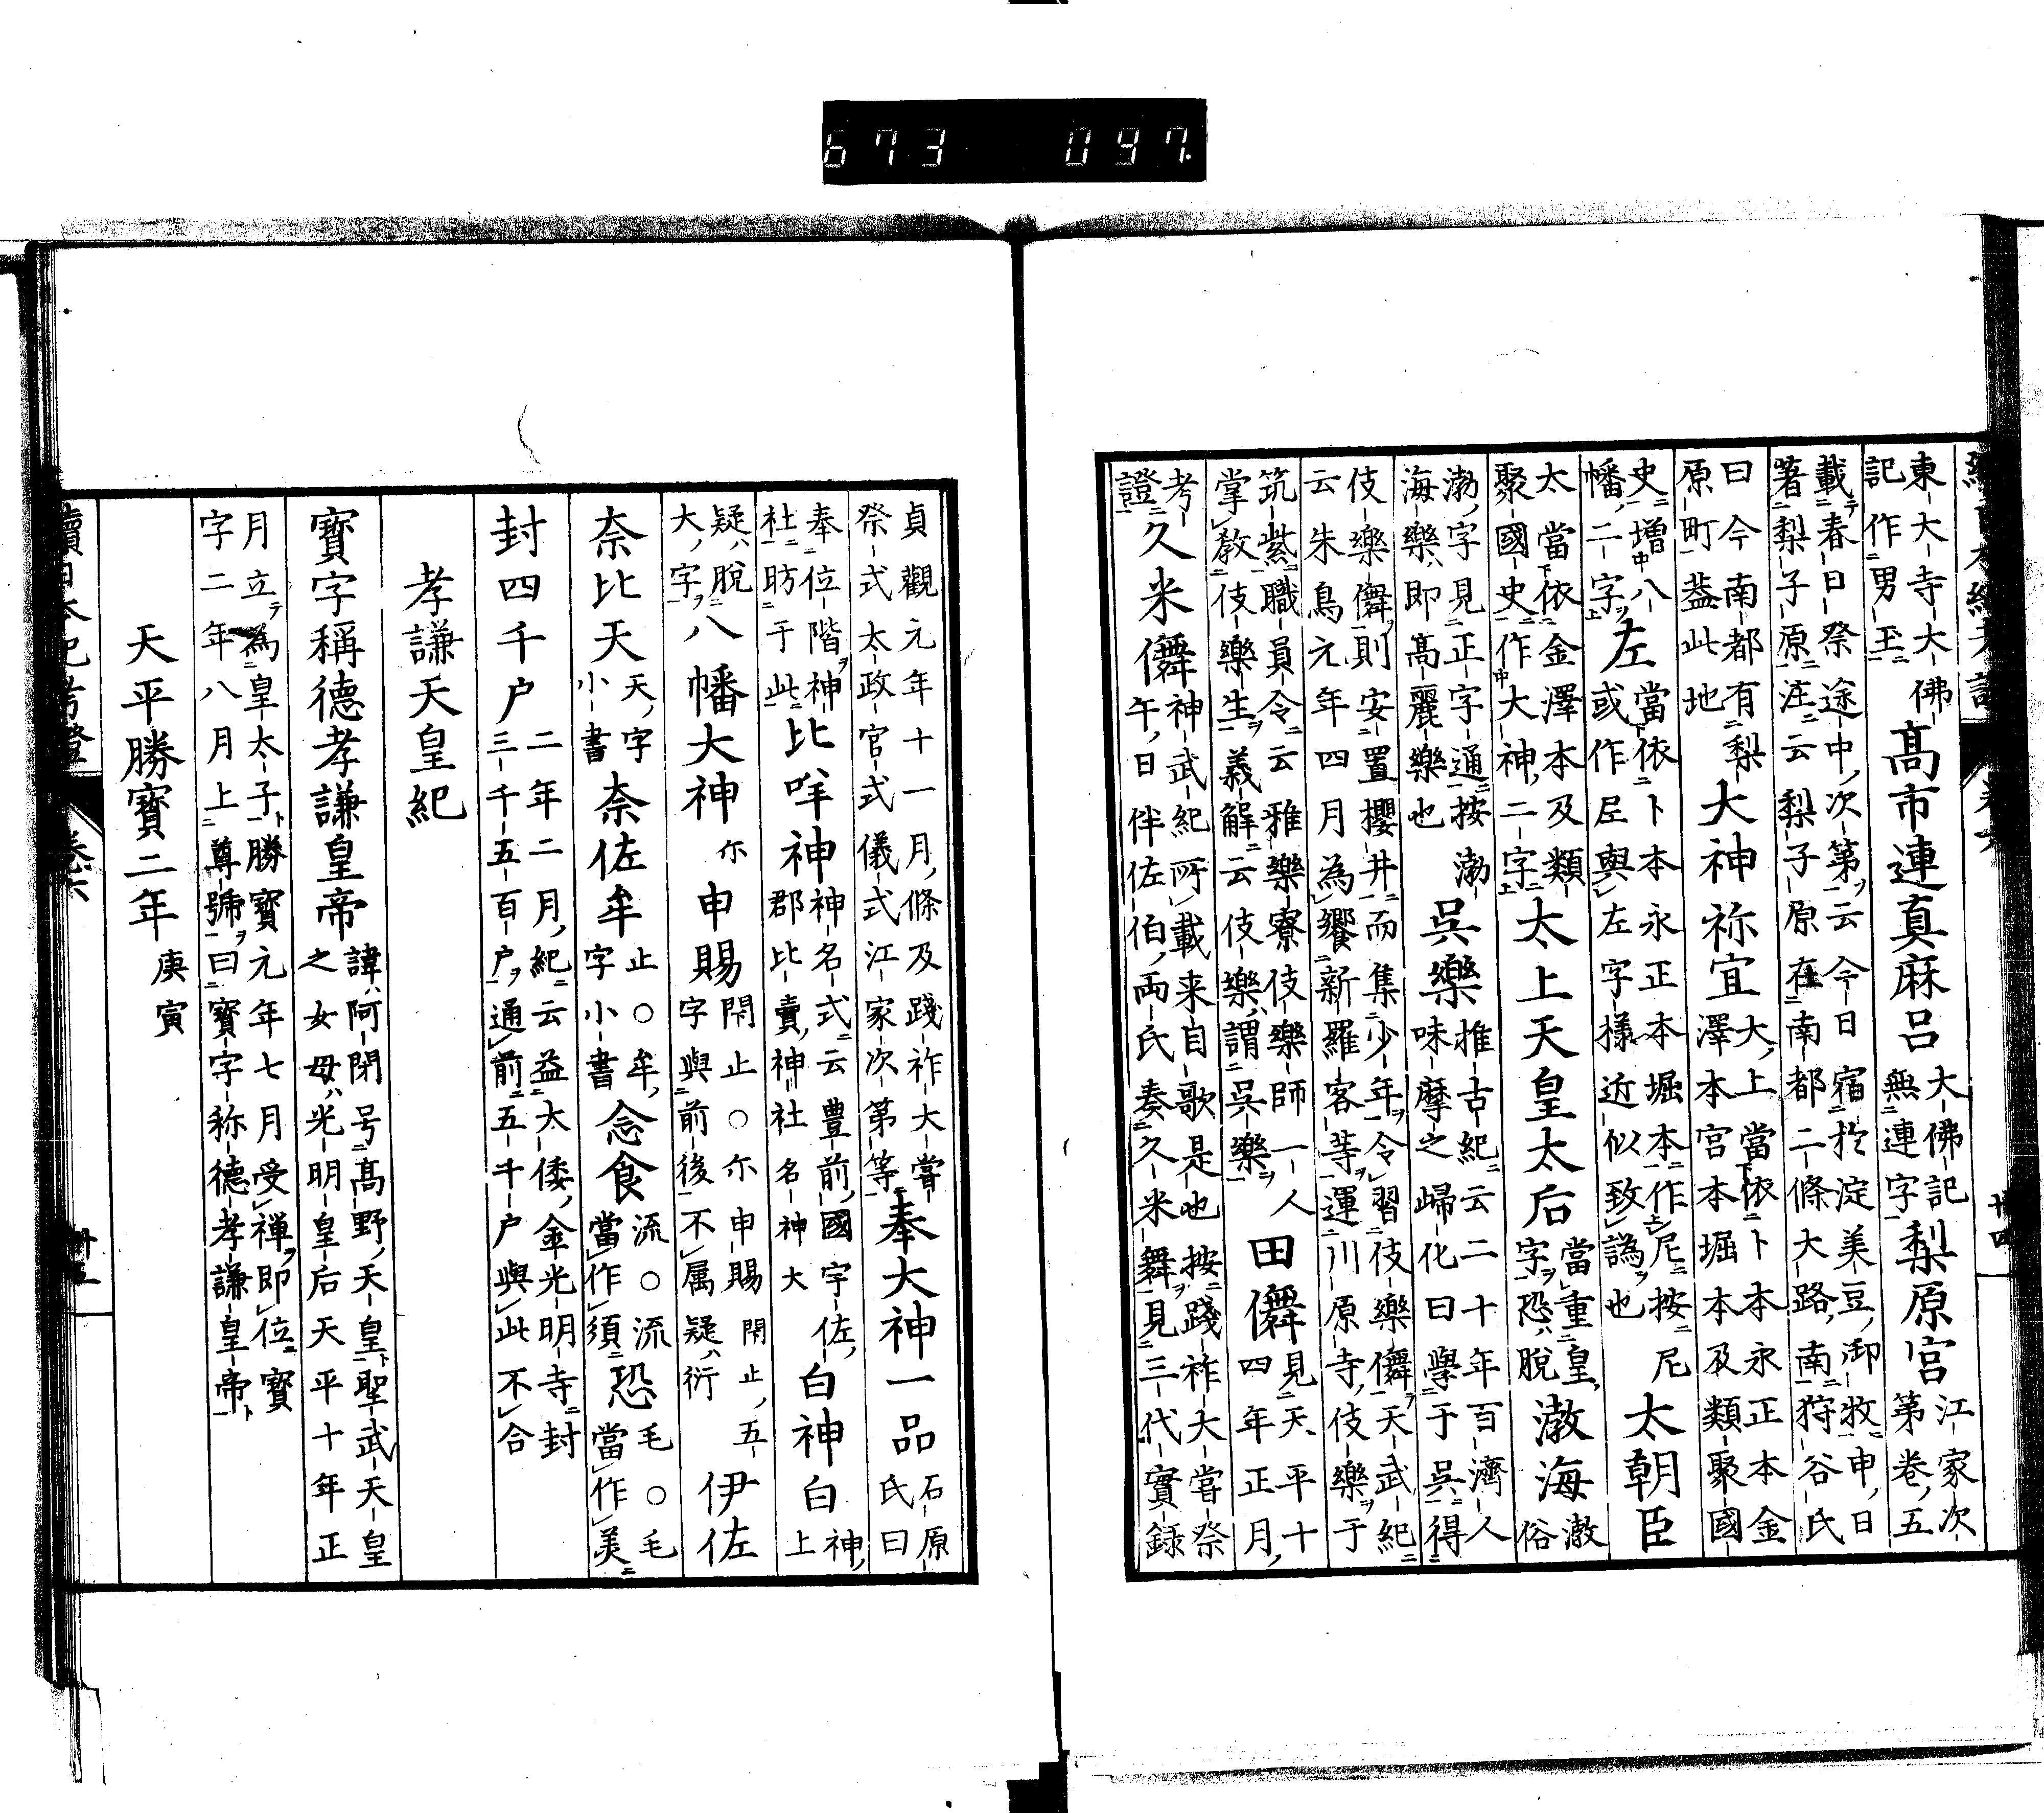 673 097.
東大寺大佛
記作男玉
高市連真麻呂
大佛記
無連字
梨原宮
江家次
第卷五
載春日祭途中次第云今日宿於淀美豆御牧申日
著梨子原注云梨子原在南都二條大路南狩谷氏
曰今南都有梨
原町葢此地
大神祢宜
大上當依卜本永正本金
澤本宮本堀本及類聚國
史増八
幡二字
左
當依卜本永正本堀本作尼按尼
或作𡰱與左字様近似致譌也
太朝臣
太當依金澤本及類
聚國史作大神二字
太上天皇太后
當重皇
字恐脫
渤海
渤俗
渤字見正字通按渤
海樂即高麗樂也
吳樂
推古紀云二十年百濟人
味摩之歸化曰學于吳得
伎樂儛則安置櫻井而集少年令習伎樂儛天武紀
云朱鳥元年四月為饗新羅客等運川原寺伎樂于
筑紫職員令云雅樂寮伎樂師一人
掌教伎樂生義解云伎樂謂吳樂
田儛
見天平十
四年正月
考
證
久米儛
神武紀所載来自歌是也按踐祚大嘗祭
午日伴佐伯両氏奏久米舞見三代實録
貞觀元年十一月條及踐祚大嘗
祭式太政官式儀式江家次第等
奉大神一品
石原
氏曰
奉位階神
社昉于此
比咩神
神名式云豊前國宇佐
郡比賣神社名神大
白神白
神上
疑脫
大字
八幡大神
尓
申賜
閇止○尓申賜閇止五
字與前後不属疑衍
伊佐
奈比天
天字
小書
奈佐牟
止○牟
字小書
念食
流○流
當作須
恐
毛○毛
當作美
封四千户
二年二月紀云益大倭金光明寺封
三千五百户通前五千户與此不合
孝謙天皇紀
寳字稱德孝謙皇帝
諱阿閇号高野天皇聖武天皇
之女母光明皇后天平十年正
月立為皇太子勝寳元年七月受禅即位寳
字二年八月上尊號曰寳字称德孝謙皇帝
天平勝寳二年
庚寅
續日本紀考證
卷六
十五